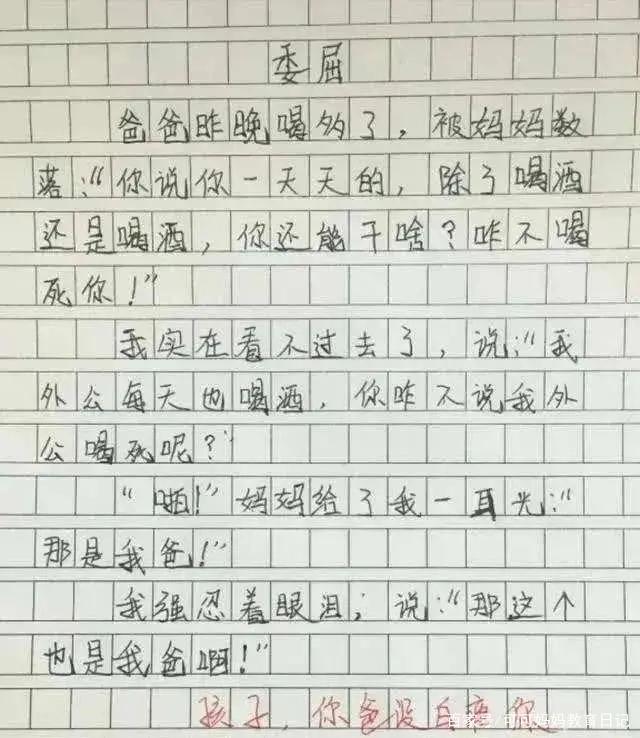 委屈
爸爸昨晚喝多了，被妈妈数
落：“你说你一天天的，除了喝酒
还是喝酒，你还能干啥？咋不喝
死你！”
我实在看不过去了，说：“我
外公每天也喝酒，你咋不说我外
公喝死呢？”
“啪！”妈妈给了我一耳光：“
那是我爸！”
我强忍着眼泪；说：“那这个
也是我爸啊！”
孩子，你爸没白疼你
百家号/可可妈妈教育日记